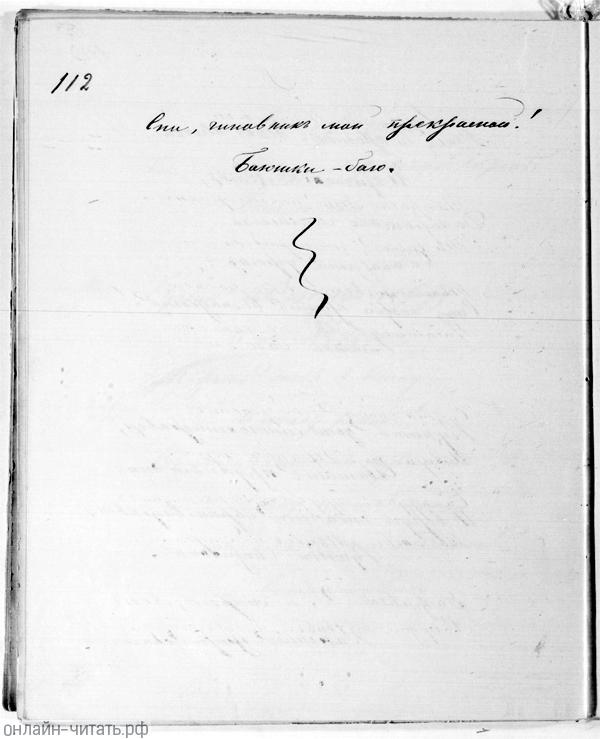 112
Спи, чиновникъ мой прекрасной!
Баюшки-баю.
онлайн-читать.рф